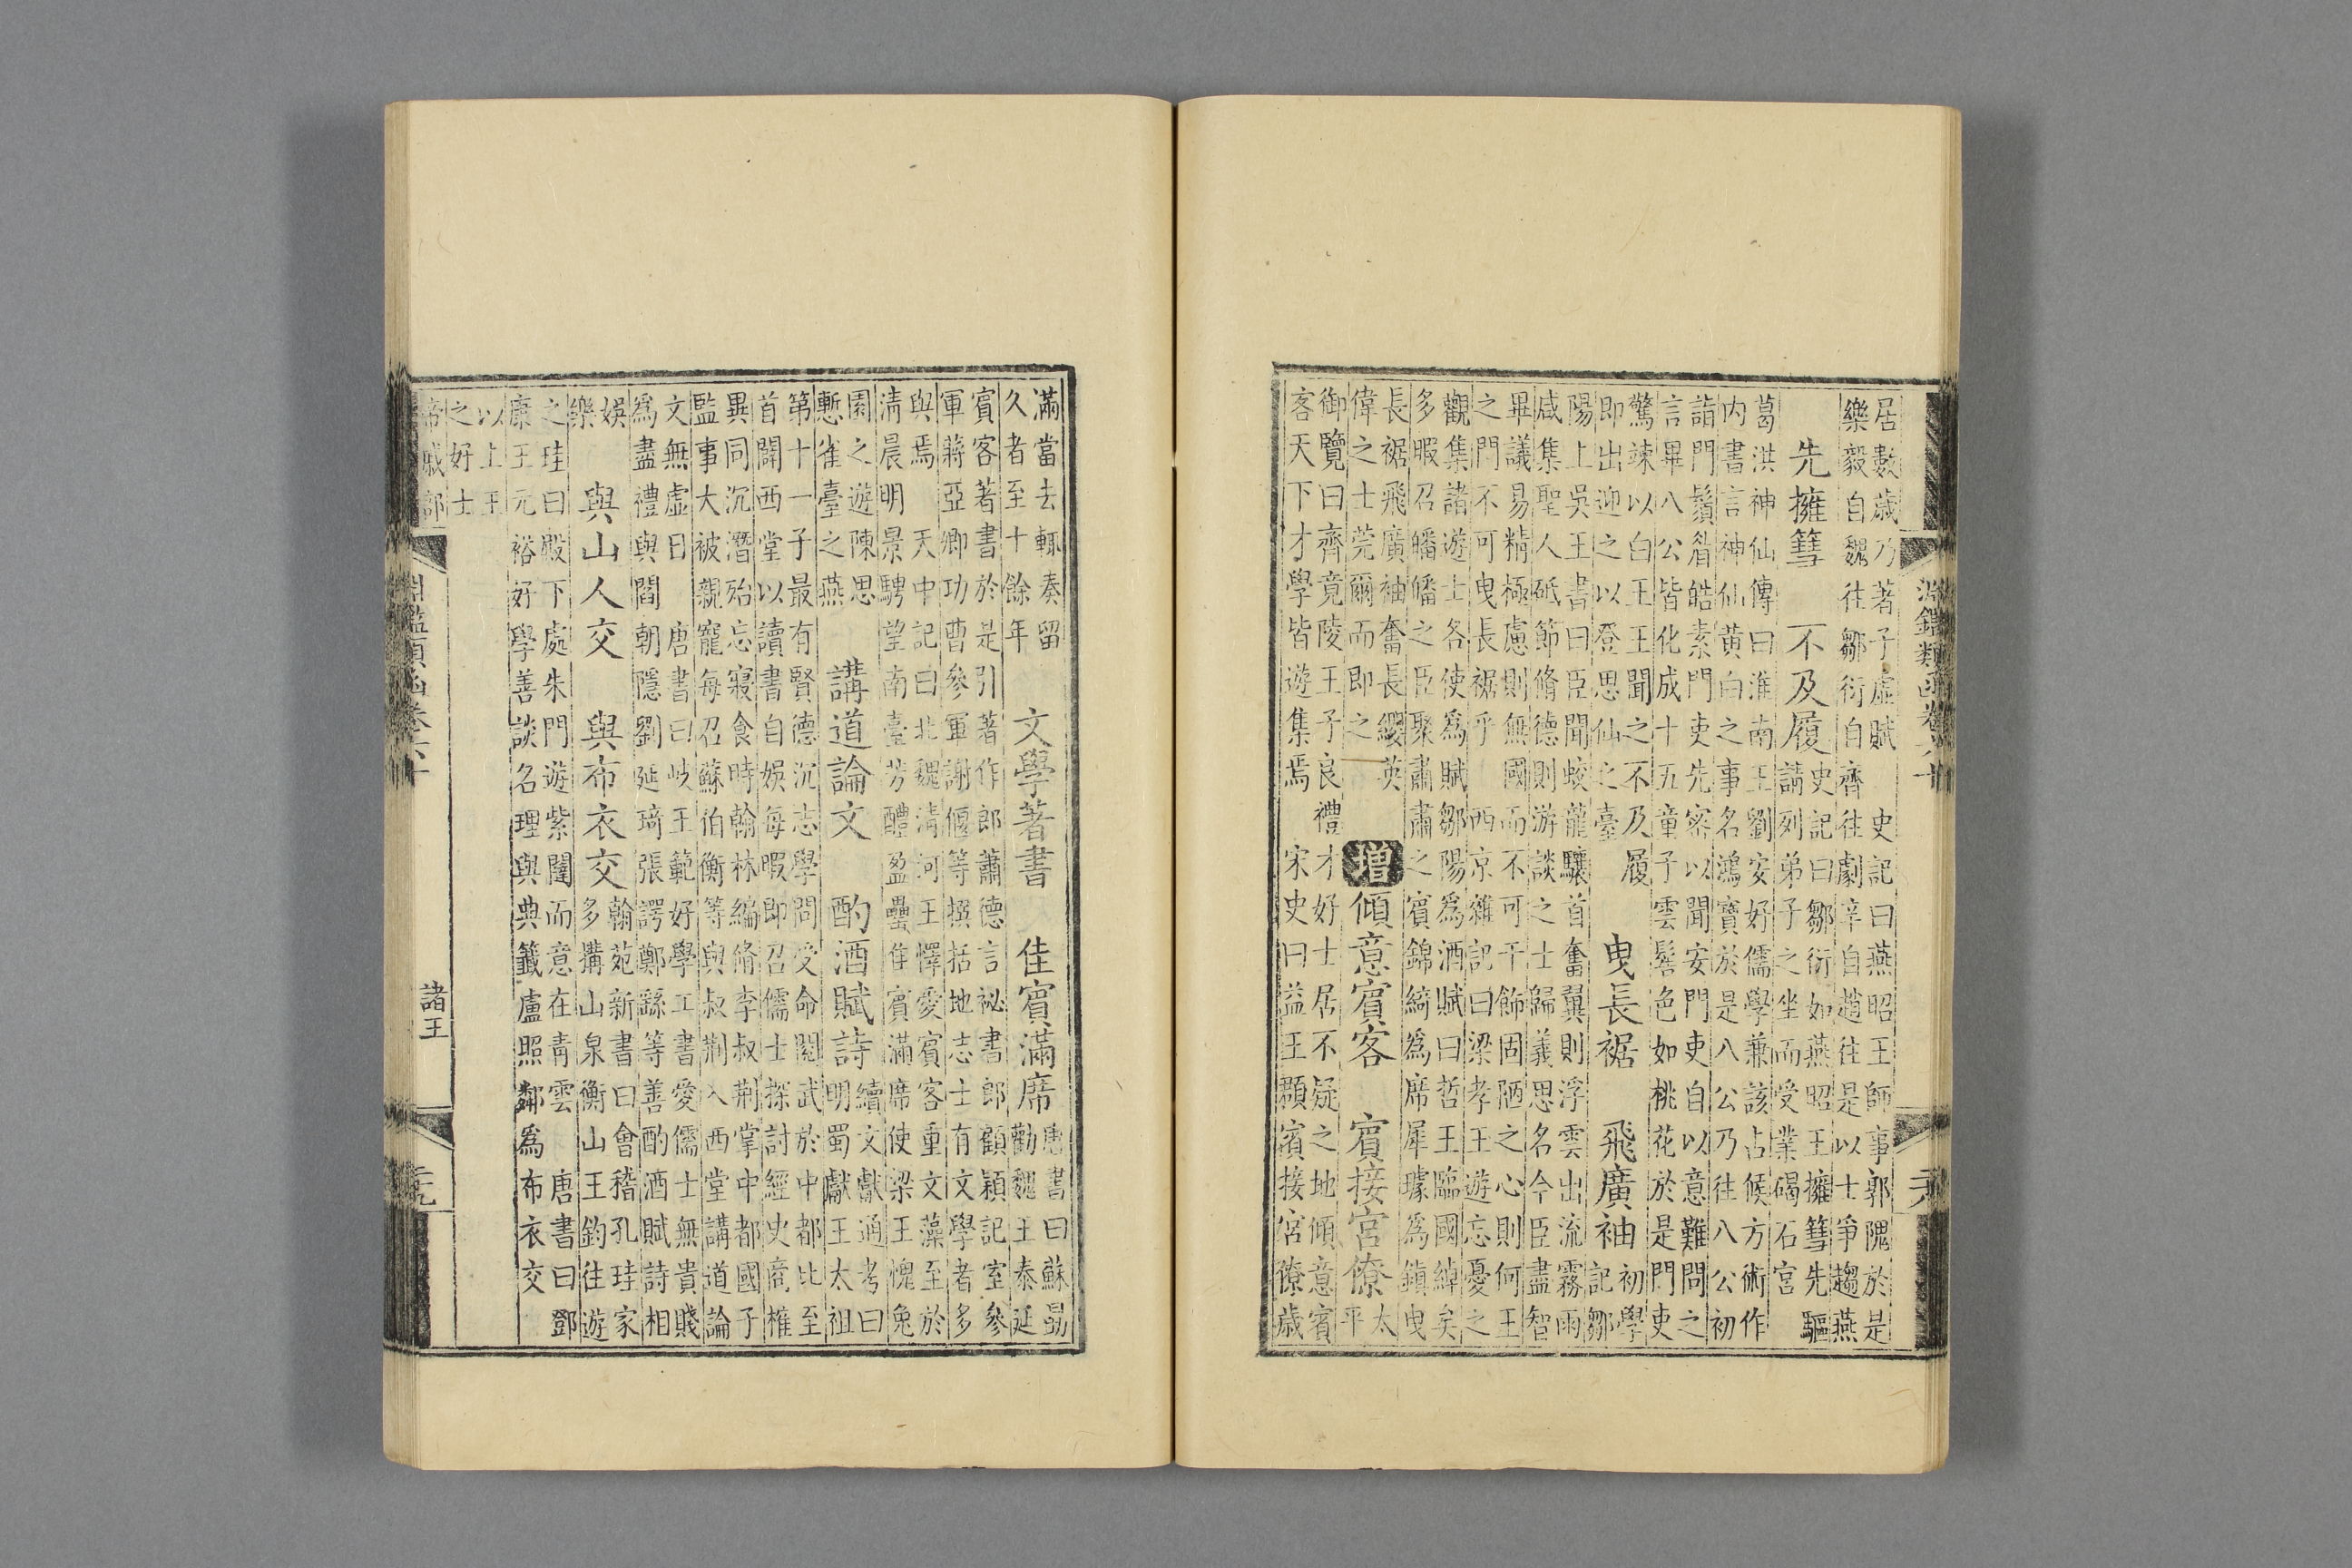 居數歲乃著子虛賦　史記曰燕昭王師事郭隗於是
樂毅自魏往鄒衍自齊往劇辛自趙往是以士爭趨燕
先擁篲　不及履
史記曰鄒衍如燕昭王擁篲先驅
請列弟子之坐而受業碣石宮
葛洪神仙傳曰淮南王劉安好儒學兼該占候方術作
内書言神仙黄白之事名鴻寶於是八公乃往八公初
詣門鬚眉皓素門吏先密以聞安門吏自以意難問之
言畢八公皆化成十五童子雲髻色如桃花於是門吏
驚竦以白王王聞之不及履
即出迎之以登思仙之臺
曳長裾　飛廣袖
初學
記鄒
陽上吳王書曰臣聞蛟龍驤首奮翼則浮雲出流霧雨
咸集聖人砥節脩德則游談之士歸義思名今臣盡智
畢議易精極慮則無國而不可干飾固陋之心則何王
之門不可曳長裾乎　西京雜記曰梁孝王遊忘憂之
觀集諸遊士各使爲賦鄒陽爲酒賦曰哲王臨國綽矣
多暇召皤皤之臣聚肅肅之賓錦綺爲席犀璩爲鎮曳
長裾飛廣袖奮長纓英
偉之士莞爾而即之
增傾意賓客　賓接宮僚
太
平
御覽曰齊竟陵王子良禮才好士居不疑之地傾意賓
客天下才學皆遊集焉　宋史曰益王顥賓接宮僚歲
滿當去輒奏留
久者至十餘年
文學著書　佳賓滿席
唐書曰蘇勗
勸魏王泰延
賓客著書於是引著作郎蕭德言祕書郎顧頴記室參
軍蔣亞卿功曹參軍謝偃等撰括地志士有文學者多
與焉　天中記曰北魏清河王懌愛賓客重文藻至於
清晨明景騁望南臺芳醴盈罍佳賓滿席使梁王愧兔
園之遊陳思
慙雀臺之燕
講道論文　酌酒賦詩
續文獻通考曰
明蜀獻王太祖
第十一子最有賢德沉志學問受命閱武於中都比至
首闢西堂以讀書自娛每暇即召儒士探討經史商榷
異同沉潛殆忘寢食時翰林編脩李叔荆掌中都國子
監事大被親寵每召蘇伯衡等與叔荆入西堂講道論
文無虛日　唐書曰岐王範好學工書愛儒士無貴賤
爲盡禮與閻朝隱劉延琦張諤鄭繇等善酌酒賦詩相
娛
樂
與山人交　與布衣交
翰苑新書曰會稽孔珪家
多搆山泉衡山王鈞往遊
之珪曰殿下處朱門遊紫闥而意在青雲　唐書曰鄧
康王元裕好學善談名理與典籤盧照鄰爲布衣交
以上王
之好士
帝戚部
諸王